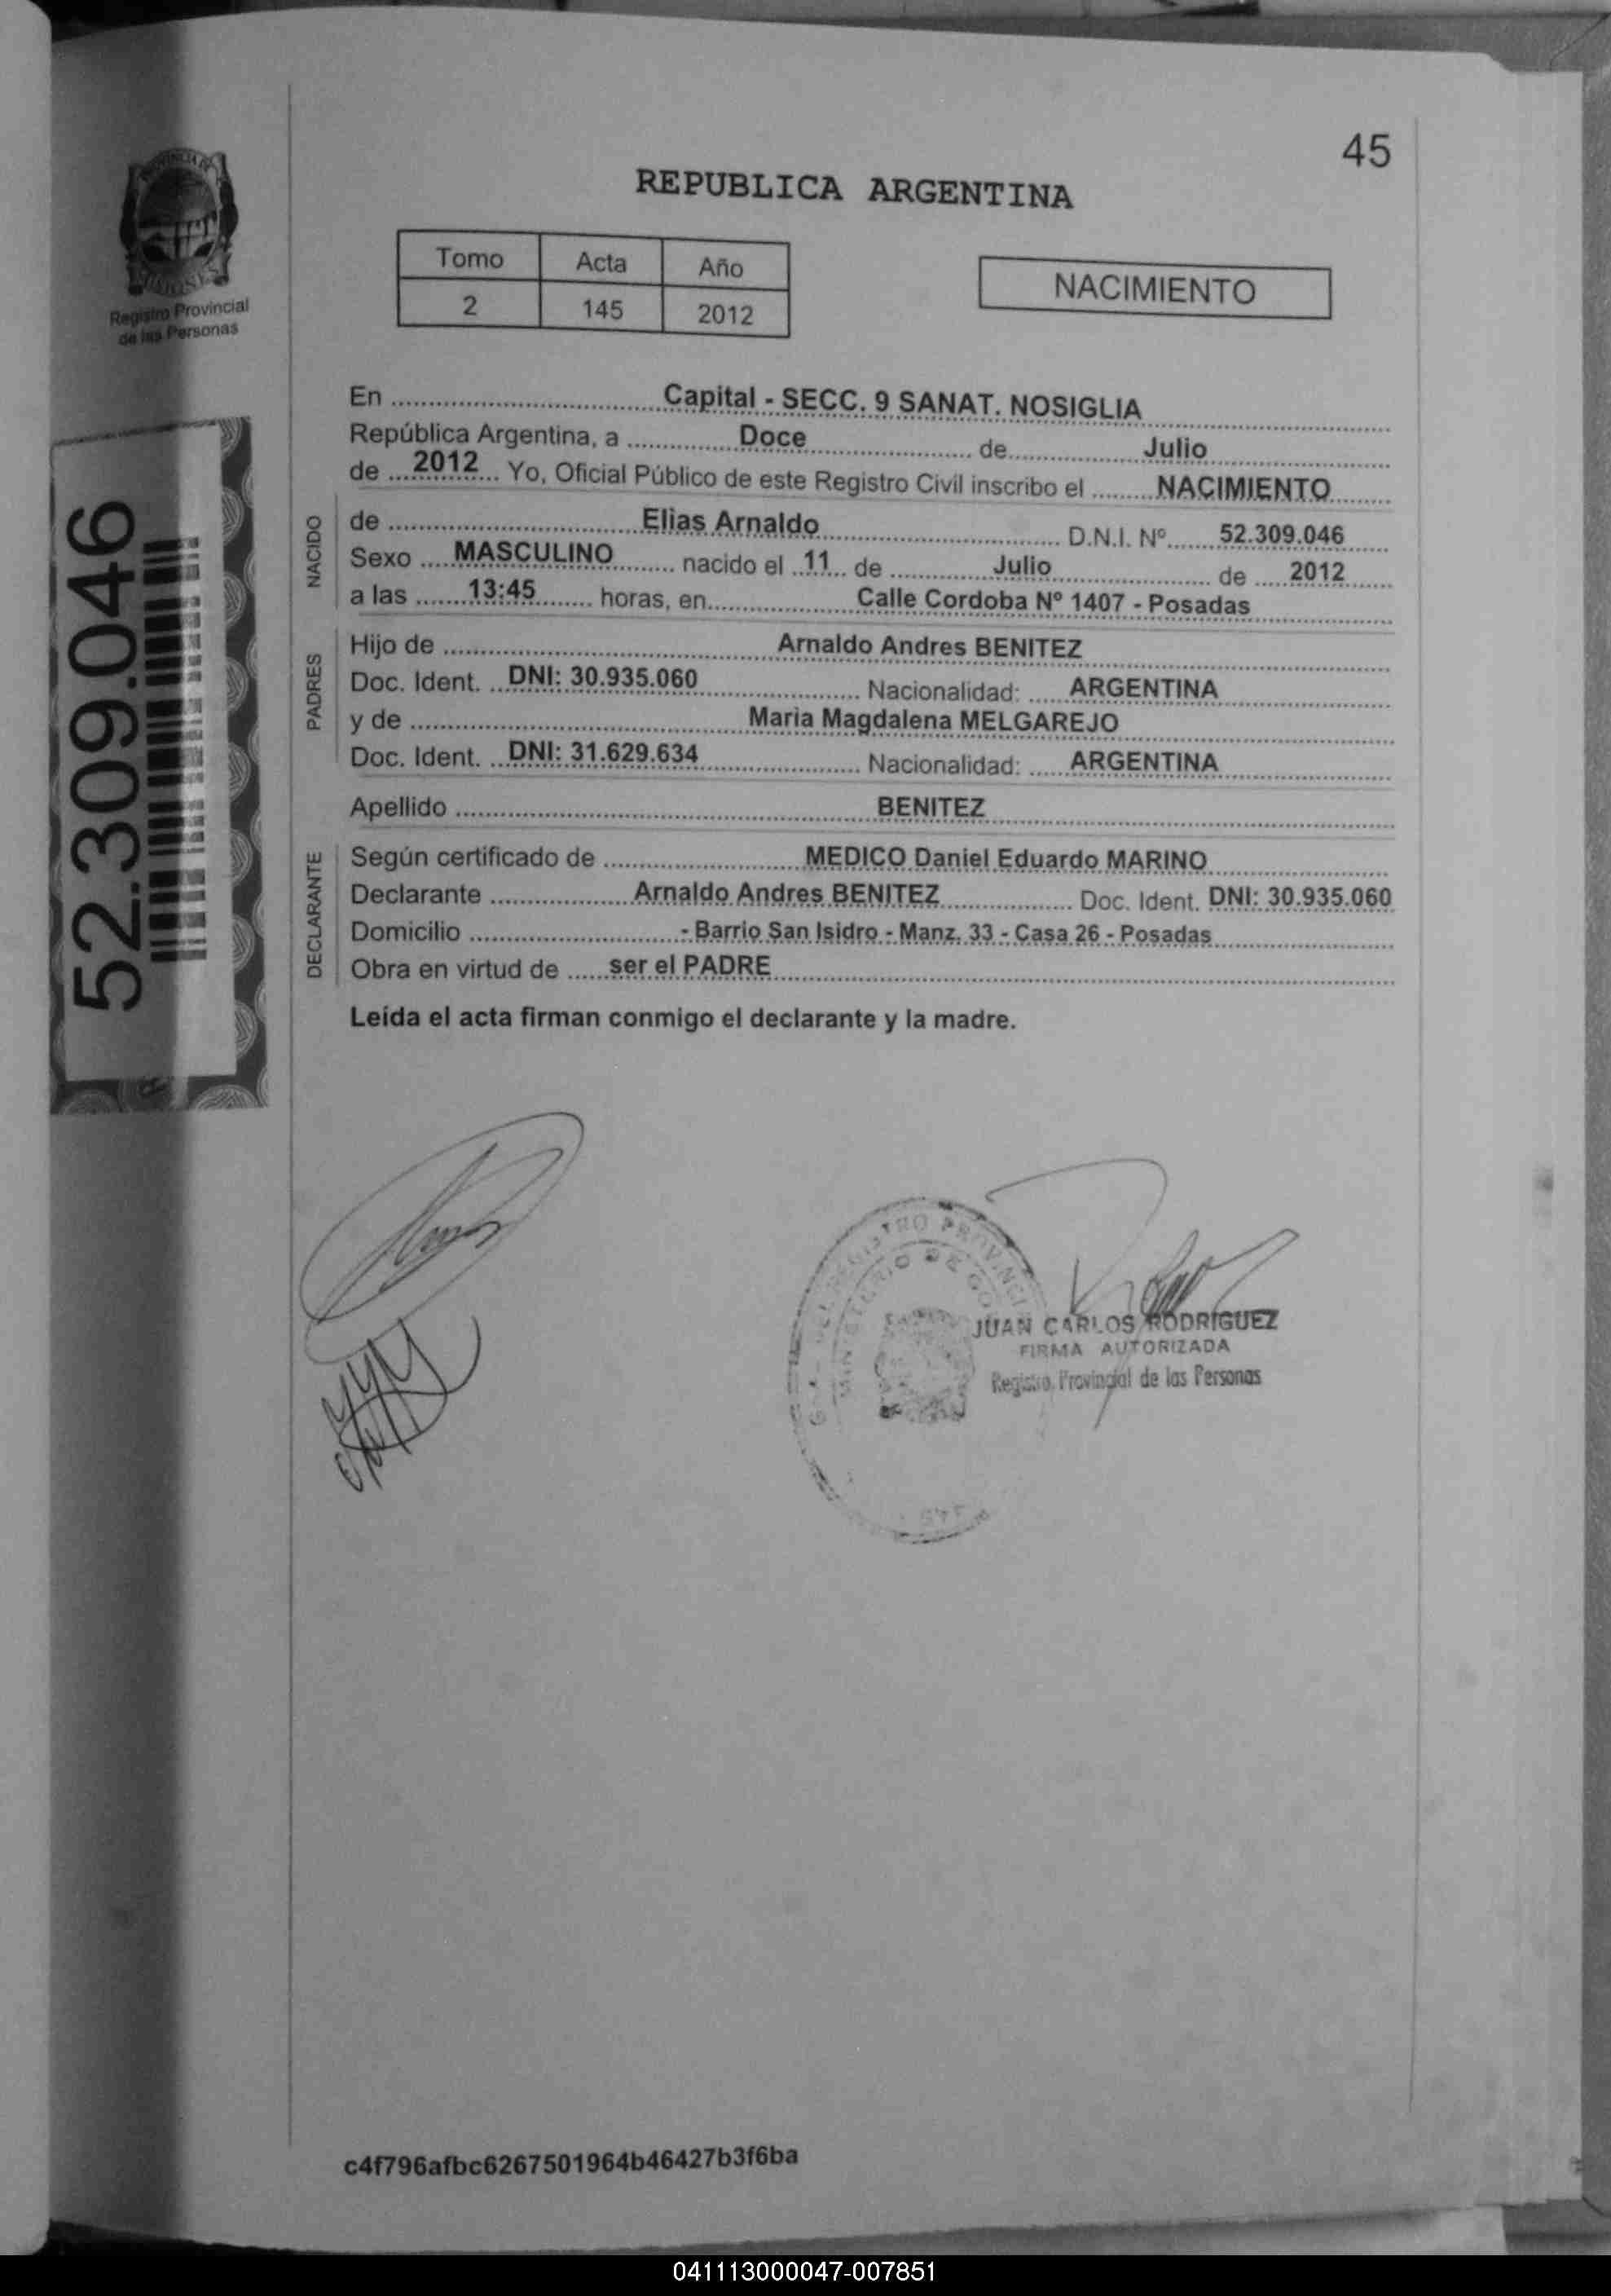 45
REPUBLICA ARGENTINA
Tomo Acta Año
2 145 2012
NACIMIENTO
Registro Provincial
de las Personas
52.309.046
En Capital - SECC. 9 SANAT. NOSIGLIA
República Argentina, a Doce de Julio
de 2012 Yo, Oficial Público de este Registro Civil inscribo el NACIMIENTO
NACIDO
de Elias Arnaldo D.N.I. Nº 52.309.046
Sexo MASCULINO nacido el 11 de Julio de 2012
a las 13:45 horas, en Calle Cordoba Nº 1407 - Posadas
PADRES
Hijo de Arnaldo Andres BENITEZ
Doc. Ident. DNI: 30.935.060 Nacionalidad: ARGENTINA
y de Maria Magdalena MELGAREJO
Doc. Ident. DNI: 31.629.634 Nacionalidad: ARGENTINA
Apellido BENITEZ
DECLARANTE
Según certificado de MEDICO Daniel Eduardo MARINO
Declarante Arnaldo Andres BENITEZ Doc. Ident. DNI: 30.935.060
Domicilio - Barrio San Isidro - Manz. 33 - Casa 26 - Posadas
Obra en virtud de ser el PADRE
Leída el acta firman conmigo el declarante y la madre.
JUAN CARLOS RODRIGUEZ
FIRMA AUTORIZADA
Registro Provincial de las Personas
c4f796afbc6267501964b46427b3f6ba
041113000047-007851